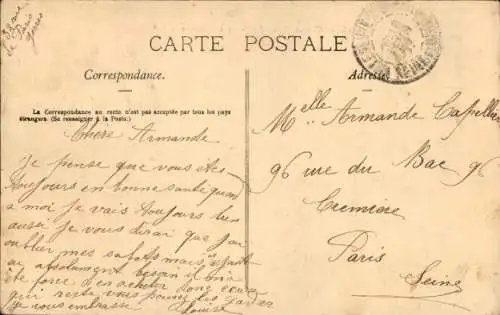 CARTE POSTALE
Correspondance.
Adresse
La Correspondance au recto n'est pas acceptée par tous les pays
étrangers. (Se renseigner à la Poste.)
Chere Armande
Je pense que vous êtes
toujours en bonne santé quand
a moi je vais toujours bien
aussi je vous dirai que j'ai
oublier mes sabots mais
absolument besoin il
été forcé d'en acheter donc ceux
qui reste vous pouvez les
je vous embrasse Louise
Melle Armande Capelline
96 rue du Bac 96
Cremiere
Paris
Seine